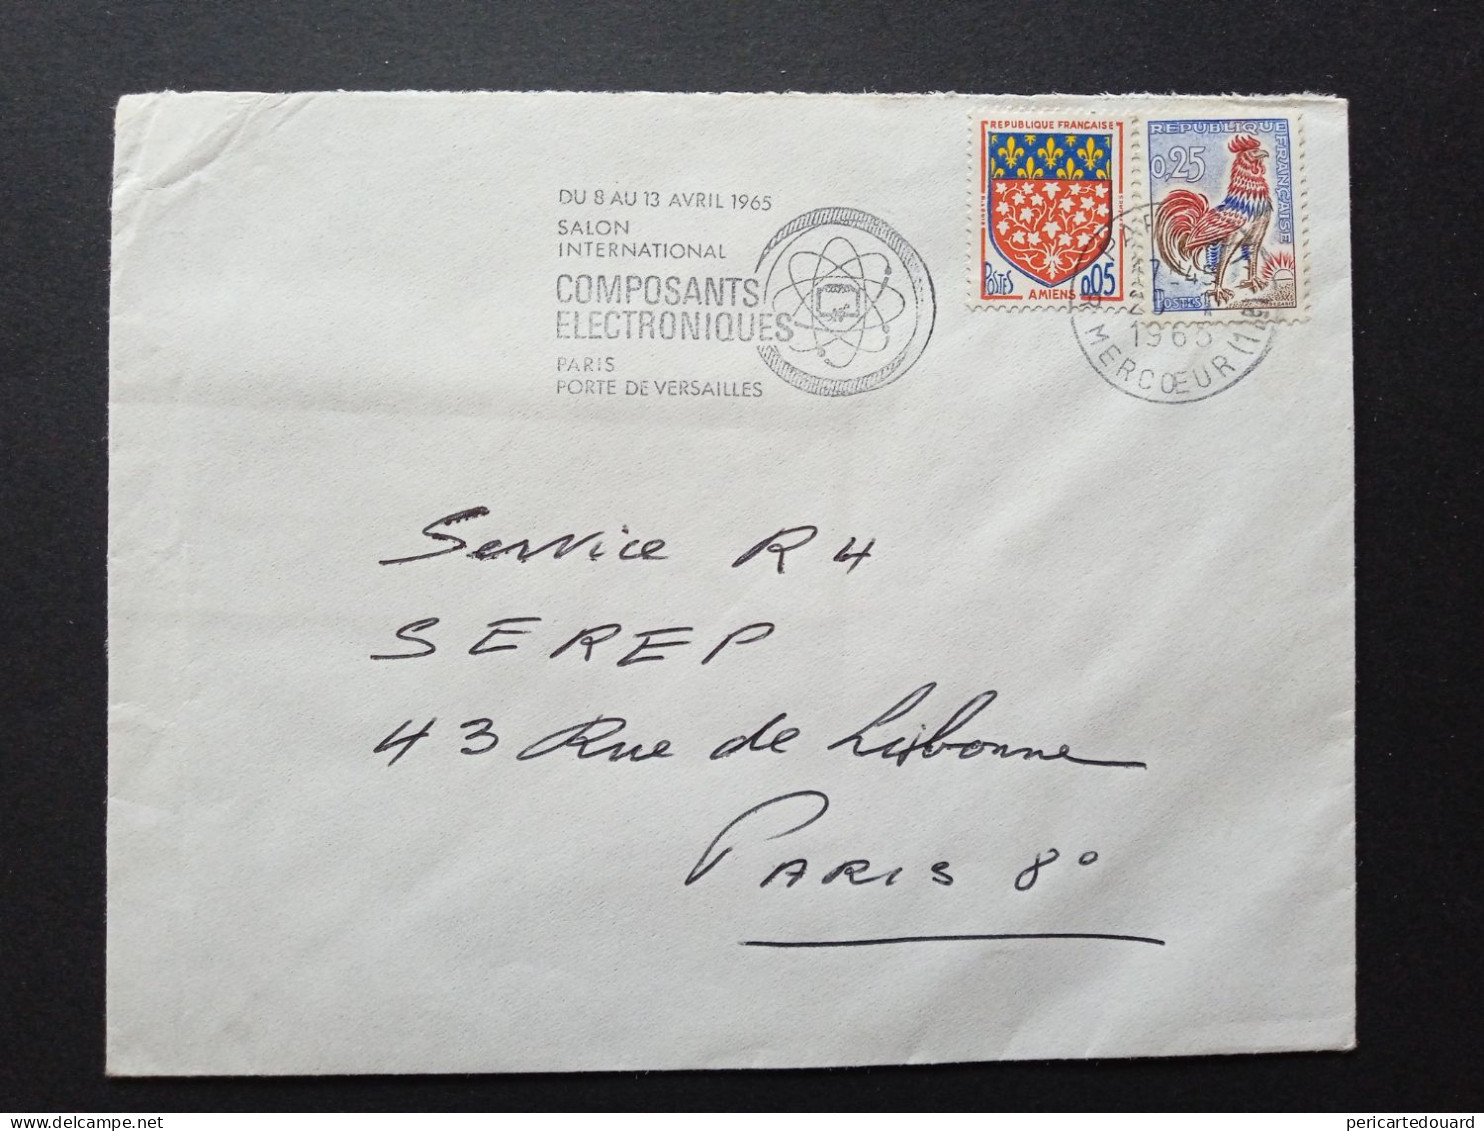 DU 8 AU 13 AVRIL 1965
SALON
INTERNATIONAL
COMPOSANTS
ELECTRONIQUES
PARIS
PORTE DE VERSAILLES
REPUBLIQUE FRANÇAISE
POSTES
0,05
AMIENS
REPUBLIQUE
FRANÇAISE
0,25
POSTES
7 -4
1965
R. MERCŒUR (11e)
Service R4
SEREP
43 Rue de Lisbonne
PARIS 8°
delcampe.net
pericartedouard